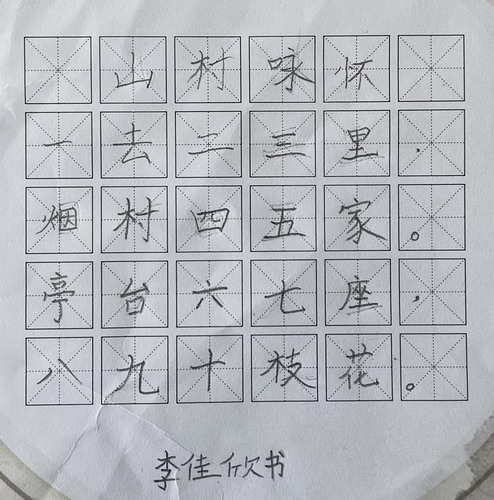 山村咏怀
一去二三里，
烟村四五家。
亭台六七座，
八九十枝花。
李佳欣书